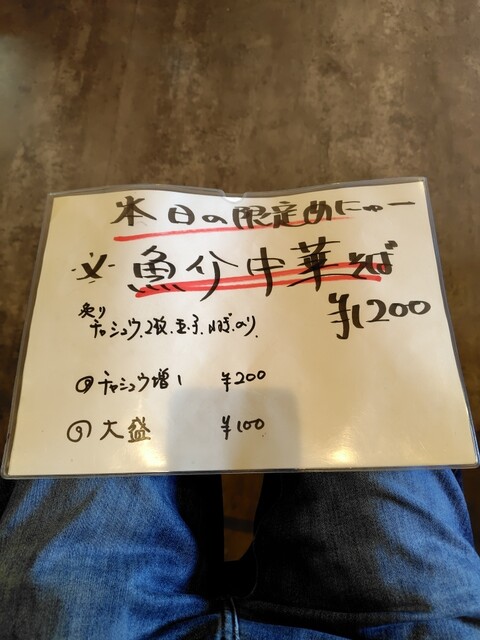 本日の限定めにゅー
魚介中華そば
¥1200
炙り
チャシュウ、2枚、玉子、のり
チャシュウ増し ¥200
大盛 ¥100